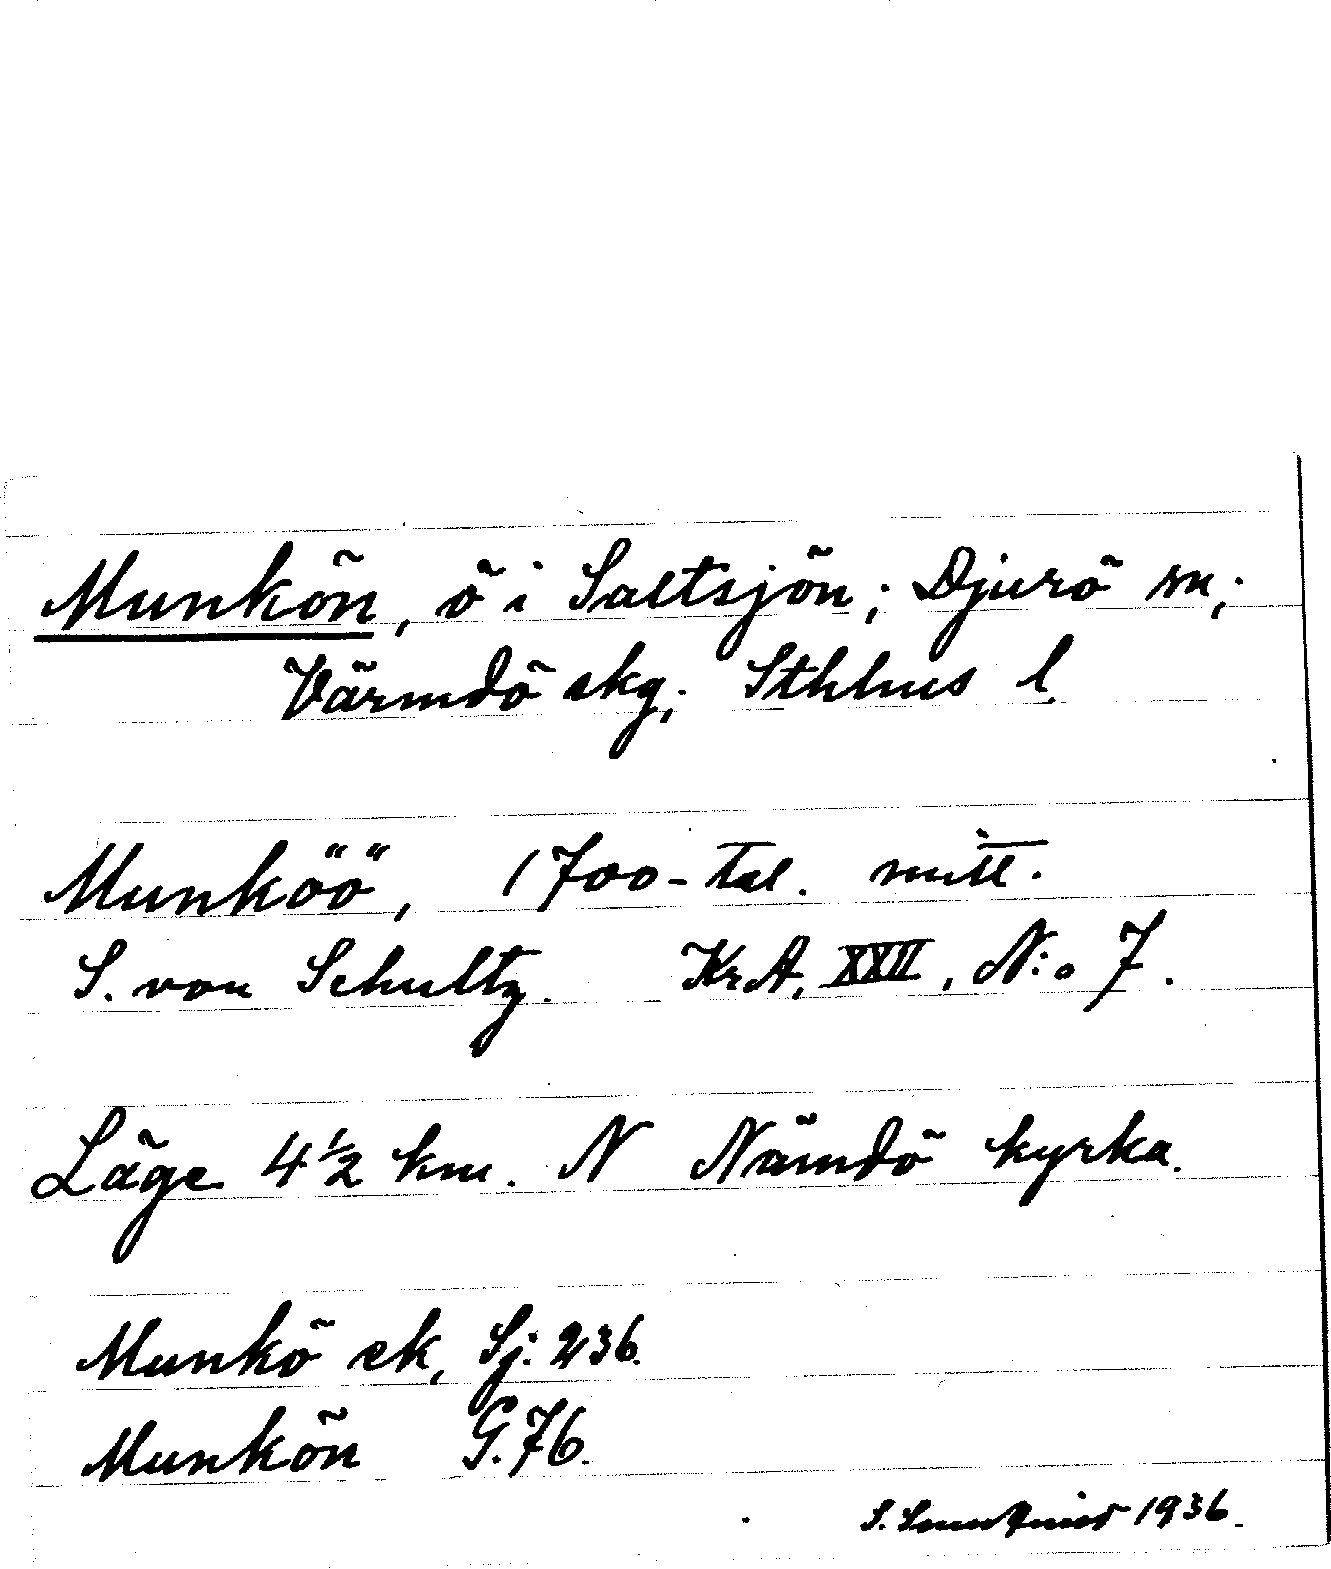 Munkön, ö i Saltsjön; Djurö sn;
Värmdö skg; Sthlms l.
Munköö, 1700-tal. mitt.
S. von Schultz. KrA, XXII, N:o 7.
Läge 4½ km. N Nämdö kyrka.
Munkö ek, Sj. 236.
Munkön G. 76.
S. 1936.